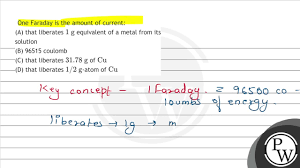 One Faraday is the amount of current:
(A) that liberates 1 g equivalent of a metal from its
solution
(B) 96515 coulomb
(C) that liberates 31.78 g of Cu
(D) that liberates 1/2 g-atom of Cu
Key concept - 1 Faraday = 96500 co-
loumbs of energy.
liberates → 1g → m
PW